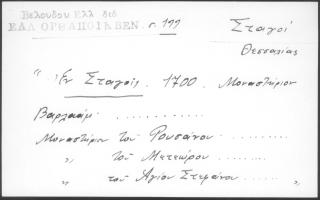 Βελουδου Ελλ διδ
ΕΛΛ ΟΡΘ ΑΠΟΙΚ ΒΕΝ. σ. 177
Σταγοί
Θεσσαλίας
"Ἐν Σταγοῖς 1700. Μοναστήριον
Βαρλαάμ. . . . . . . . . .
Μοναστήριον τοῦ Ρουσάνου . . . . . . . . . .
" τοῦ Μετεώρου . . . . . . . . . .
" τοῦ Ἁγίου Στεφάνου . . . . . . "